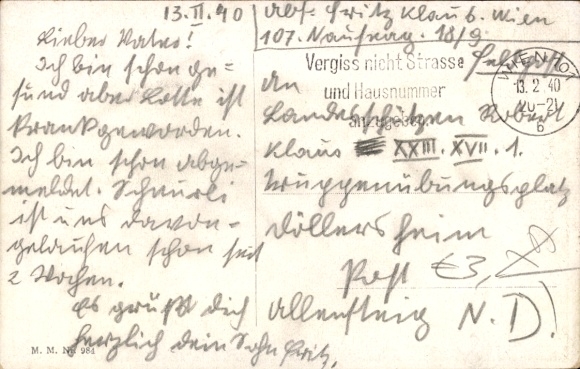 13.II.40
Lieber Vater!
Ich bin schon ge-
sund aber Lotte ist
krank geworden.
Ich bin schon abge-
meldet. Schnurli
ist uns davon-
gelaufen schon seit
2 Wochen.
Es grüßt dich
herzlich dein Sohn Fritz.
M. M. Nr. 984
Abs. Fritz Klaus. Wien
107. 18/9.
Feldpost
Vergiss nicht Strasse
und Hausnummer
anzugeben
WIEN 107
13. 2. 40
20-21
b
An
Landesschützen Robert
Klaus XXIII. XVII. 1.
Truppenübungsplatz
Döllersheim
Post €3,
Allentsteig N. D.